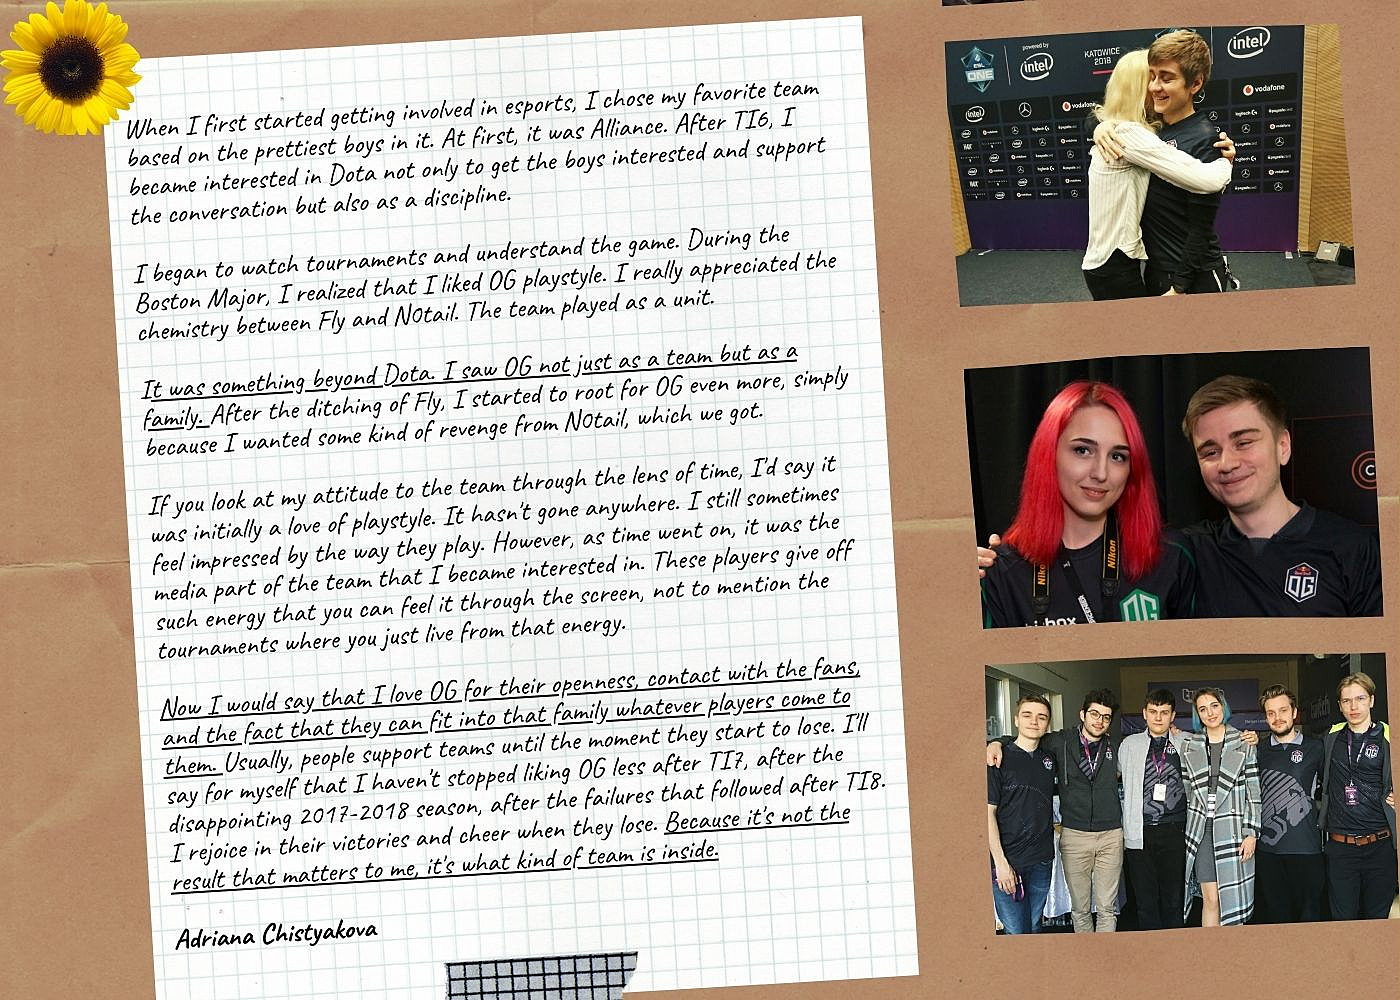 When I first started getting involved in esports, I chose my favorite team
based on the prettiest boys in it. At first, it was Alliance. After TI6, I
became interested in Dota not only to get the boys interested and support
the conversation but also as a discipline.
I began to watch tournaments and understand the game. During the
Boston Major, I realized that I liked OG playstyle. I really appreciated the
chemistry between Fly and N0tail. The team played as a unit.
It was something beyond Dota. I saw OG not just as a team but as a
family. After the ditching of Fly, I started to root for OG even more, simply
because I wanted some kind of revenge from N0tail, which we got.
If you look at my attitude to the team through the lens of time, I'd say it
was initially a love of playstyle. It hasn't gone anywhere. I still sometimes
feel impressed by the way they play. However, as time went on, it was the
media part of the team that I became interested in. These players give off
such energy that you can feel it through the screen, not to mention the
tournaments where you just live from that energy.
Now I would say that I love OG for their openness, contact with the fans,
and the fact that they can fit into that family whatever players come to
them. Usually, people support teams until the moment they start to lose. I'll
say for myself that I haven't stopped liking OG less after TI7, after the
disappointing 2017-2018 season, after the failures that followed after TI8.
I rejoice in their victories and cheer when they lose. Because it's not the
result that matters to me, it's what kind of team is inside.
Adriana Chistyakova
ESL
ONE
powered by
intel
KATOWICE
2018
intel
vodafone
vodafone
Nikon
Nikon
OG
OG